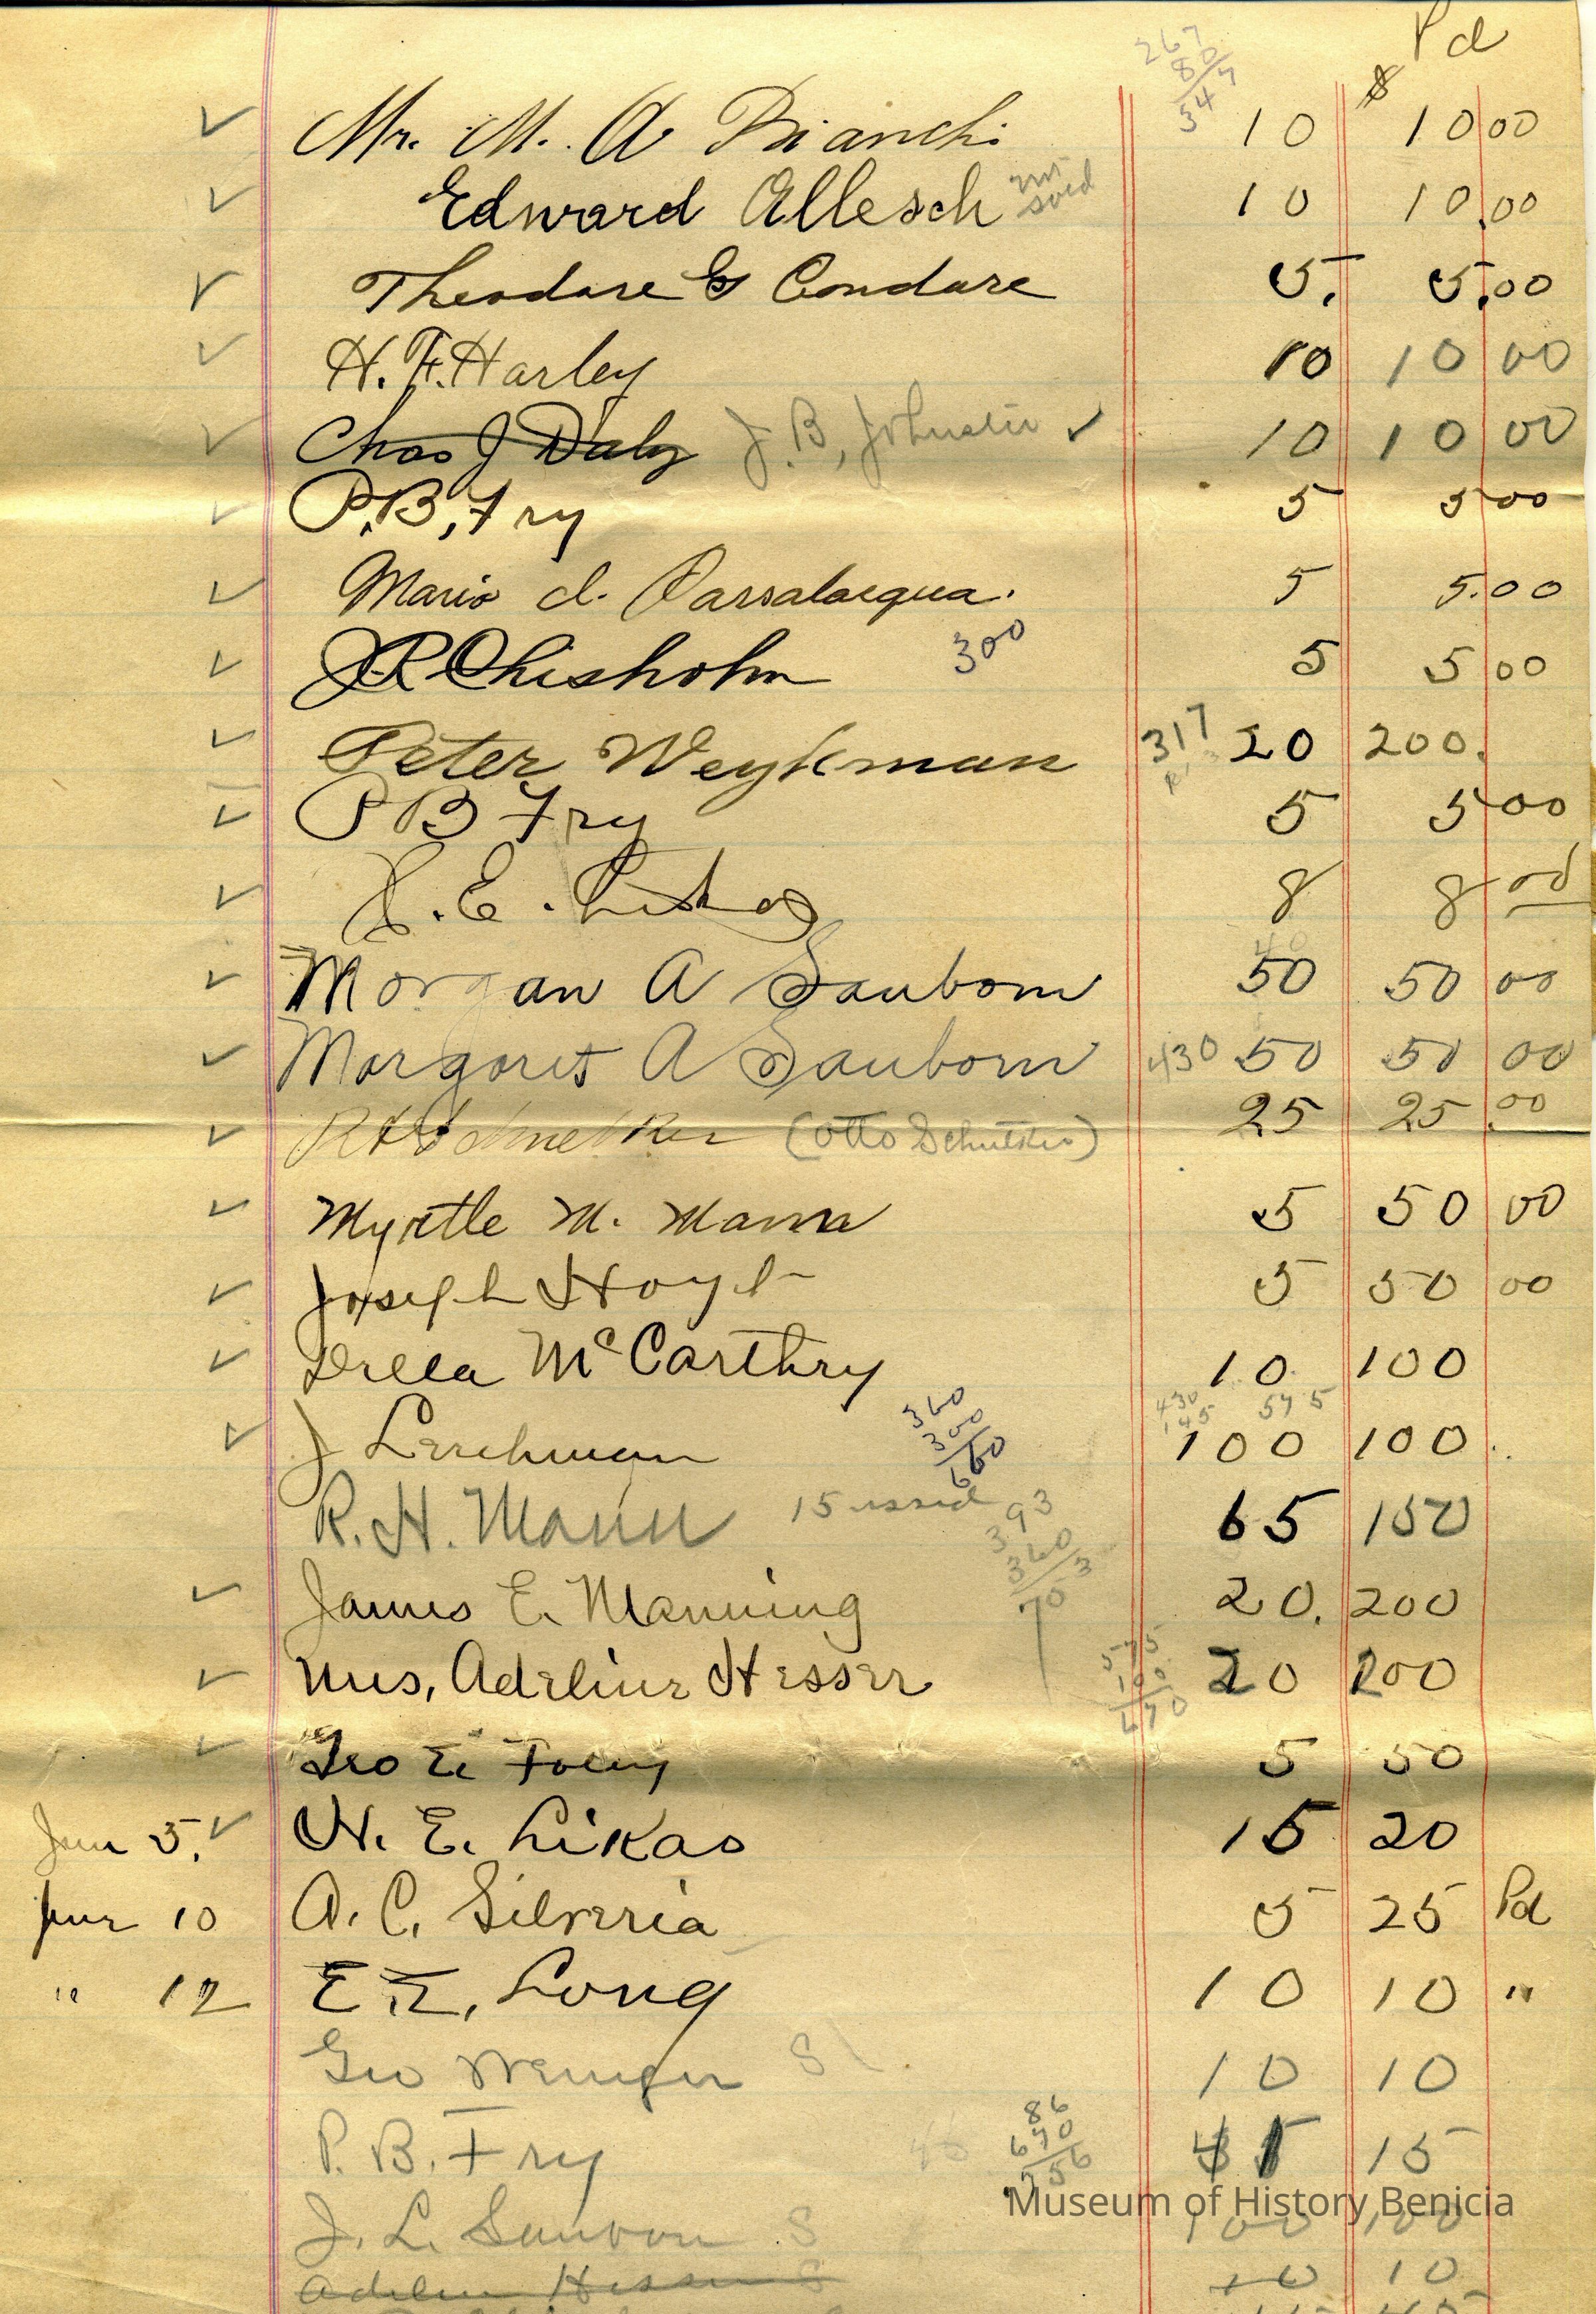 Pd
267
80
347
$
Mr. M. A Bianchi 10 10 00
Edward Allesch 10 10.00
Theodore G Condare 5. 5.00
H. F. Harley 10 10 00
Chas J Daly J. B, Johnston 10 10 00
P. B, Fry 5 5 00
Mario d. Passalacqua. 5 5.00
J R Chisholm 300 5 5 00
Peter Weykman 317 20 200.
P B Fry 5 5 00
H. E. Likas 8 8 00
40
Morgan A Sanborn 50 50 00
Margaret A Sanborn 430 50 50 00
(Otto Schutzke) 25 25.00
Myrtle M. Mann 5 50 00
Joseph Hoyt 5 50 00
Della McCarthry 10. 100
430
145 575
360
300
660
J Lerchman 100 100.
R. H. Mann 15 65 150
393
360
703
James E. Manning 20. 200
575
100
670
Mrs, Adeline Hesser 20 200
Geo E. Foley 5 50
Jun 5. H. E. Likas 15 20
June 10 A. C. Silveria 5 25 Pd
" 12 E. E, Long 10 10 "
Geo S 10 10
86
670
756
P. B. Fry 15
Museum of History Benicia
J. L. Sanborn S 100 100
Adeline Hesser S 10 10